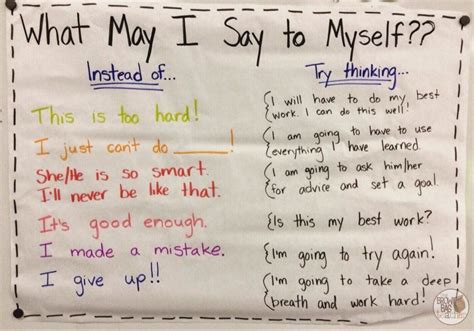 What May I Say to Myself??
Instead of...
Try thinking...
This is too hard!
I will have to do my best
work. I can do this well!
I just can't do _____!
I am going to have to use
everything I have learned.
She/He is so smart.
I'll never be like that.
I am going to ask him/her
for advice and set a goal.
It's good enough.
Is this my best work?
I made a mistake.
I'm going to try again!
I give up!!
I'm going to take a deep
breath and work hard!